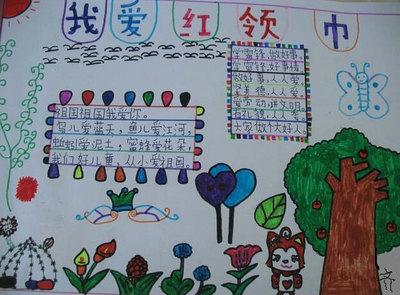 我爱红领巾
祖国祖国我爱你。
鸟儿爱蓝天,鱼儿爱江河,
蚯蚓爱泥土,蜜蜂爱花朵,
我们好儿童,从小爱祖国。
学雷锋,做好事,
学雷锋,好事接
做好事,人人爱,
人人爱,
爱劳动,讲文明,
有礼貌,人人爱,
大家做个大好人。